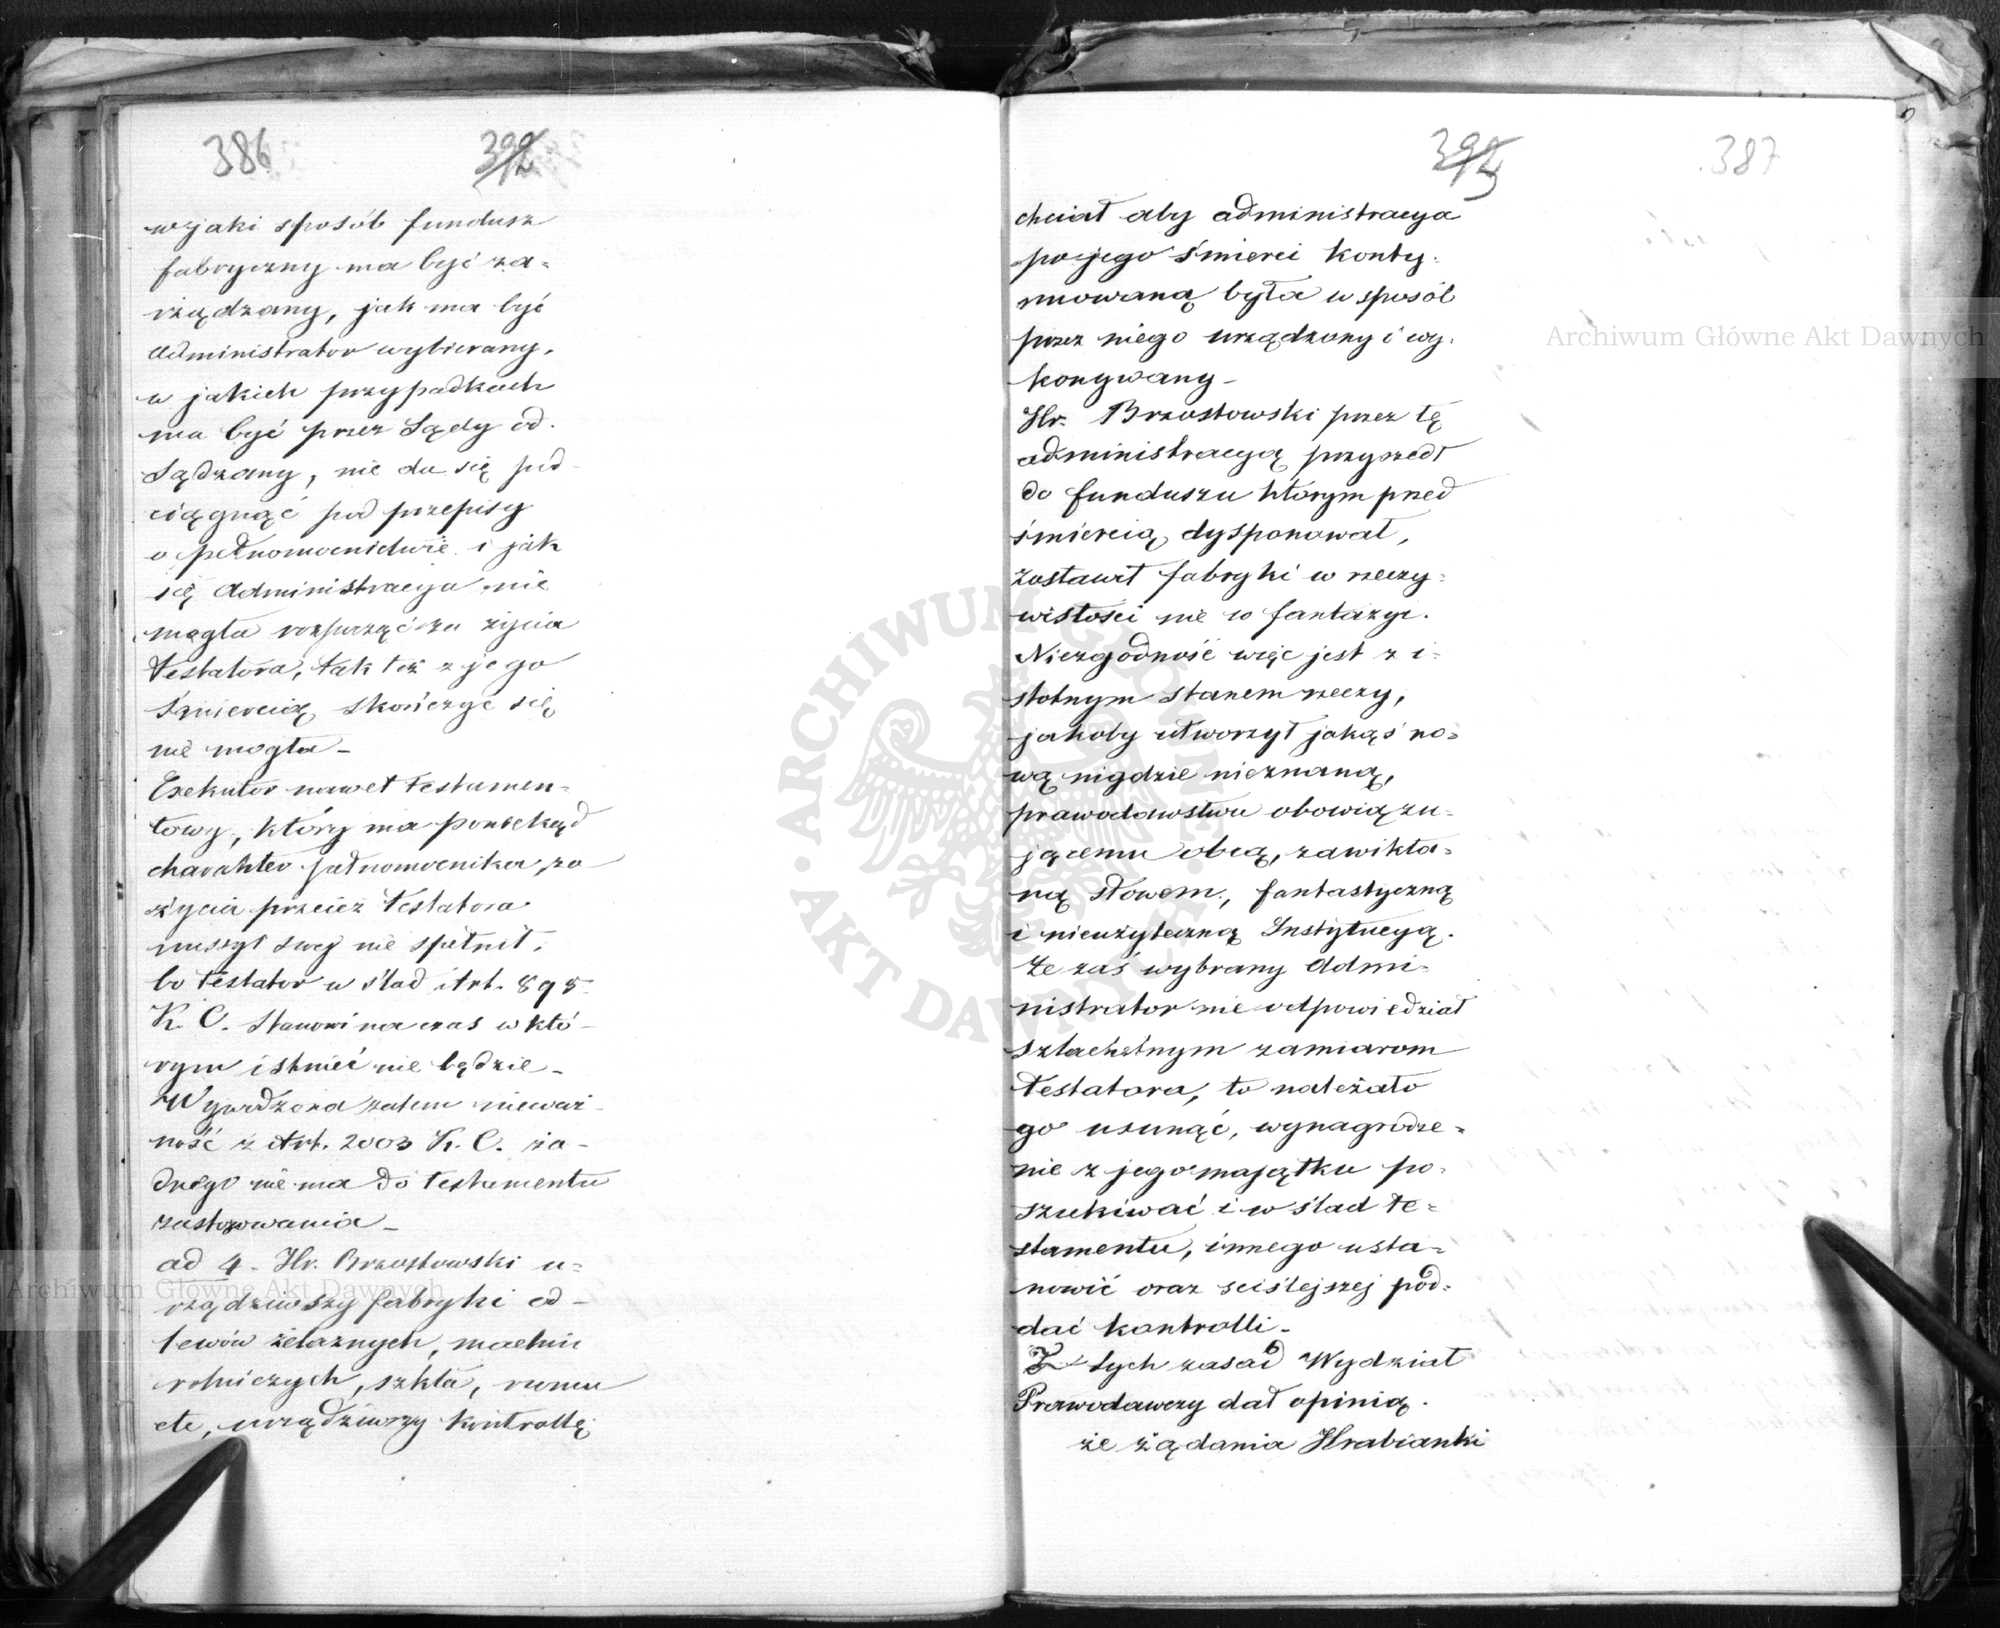 386
392
w jaki sposób fundusz
fabryczny ma być za=
rządzany, jak ma być
administrator wybierany,
w jakich przypadkach
ma być przez Sądy od.
sądzany, nie da się pod-
ciągnąć pod przepisy
o pełnomocnictwie i jak
się Administracya nie
mogła rozpocząć za życia
Testatora, tak też z jego
śmiercią skończyć się
nie mogła_
Exekutor nawet testamen=
towy, który ma poniekąd
charakter pełnomocnika, za
życia przecież Testatora
missyi swej nie spełnił,
bo testator w ślad Art. 895
K. C. Stanowi na czas w któ-
rym istnieć nie będzie_
Wywodzona zatem nieważ-
ność z Art. 2003 K. C. ża-
dnego nie ma do testamentu
zastosowania_
ad 4. Hr. Brzostowski u=
rządziwszy fabryki od-
lewów żelaznych, machin
rolniczych, szkła, rumu
etc, urządziwszy kontrollę
395
387
chciał aby administracya
po jego śmierci konty=
nuowaną była w sposób
przez niego urządzony i wy.
konywany_
Hr. Brzostowski przez tę
administracyą przyszedł
do funduszu którym przed
śmiercią dysponował,
zostawił fabryki w rzeczy=
wistości nie w fantazyi.
Niezgodność więc jest z i=
stotnym stanem rzeczy,
jakoby utworzył jakąś no=
wą nigdzie nieznaną,
prawodawstwu obowiązu=
jącemu obcą, zawikła=
ną słowem, fantastyczną
i nieużyteczną Instytucyą.
Że zaś wybrany Admi=
nistrator nie odpowiedział
szlachetnym zamiarom
Testatora, to należało
go usunąć, wynagrodze=
nie z jego majątku po=
szukiwać i w ślad te=
stamentu, innego usta=
nowić oraz ściślejszej pod=
dać kontrolli_
Z tych zasad Wydział
Prawodawczy dał opinią.
że żądania Hrabianki
Archiwum Główne Akt Dawnych
Archiwum Główne Akt Dawnych
ARCHIWUM GŁÓWNE • AKT DAWNYCH •